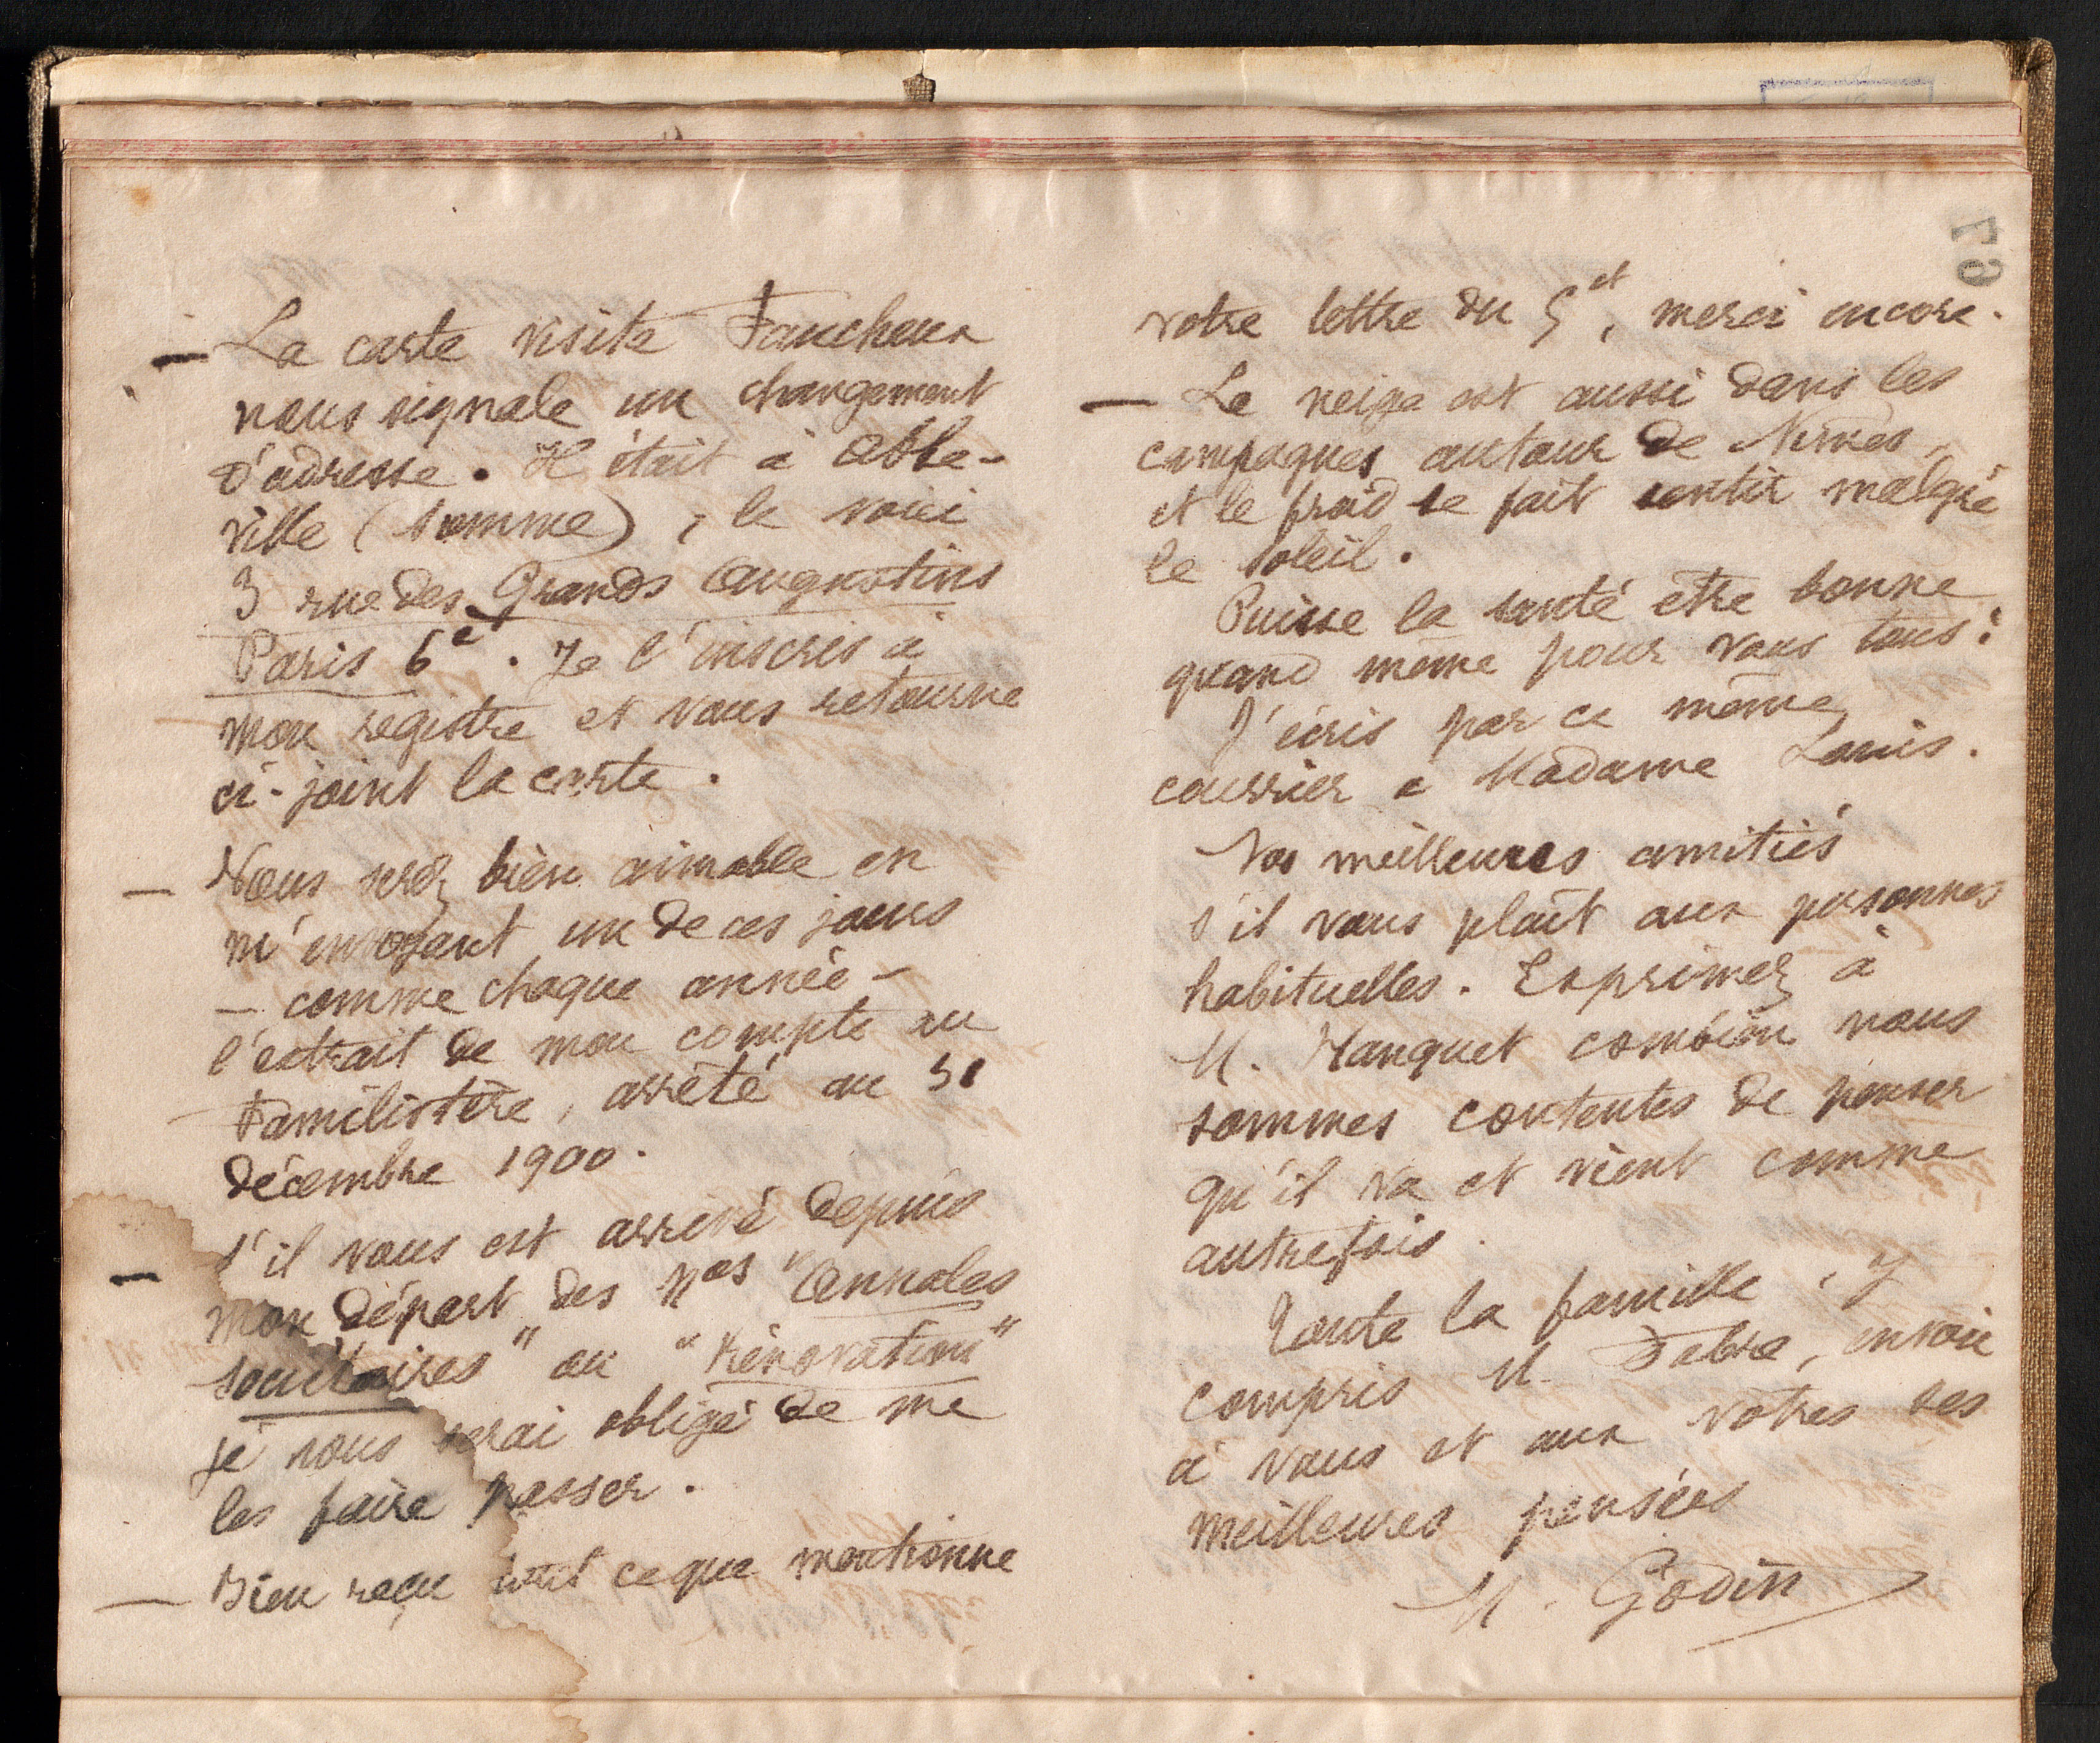 — La carte visite Faucheux
nous signale un changement
d'adresse. Il était à Abbe-
ville (Somme), le voici
3 rue des Grands Augustins
Paris 6e. Je l'inscris à
mon registre et vous retourne
ci-joint la carte.
— Vous serez bien aimable en
m'envoyant un de ces jours
— comme chaque année —
l'extrait de mon compte au
Familistère, arrêté au 31
décembre 1900.
— S'il vous est arrivé depuis
mon départ des nos "Annales
sociétaires" ou "Rénovation"
je vous serai obligé de me
les faire passer.
— Bien reçu tout ce que mentionne
67
votre lettre du 5 et, merci encore.
— La neige est aussi dans les
campagnes autour de Nimes,
et le froid se fait sentir malgré
le soleil.
Puisse la santé être bonne
quand même pour vous tous!
J'écris par ce même
courrier a Madame Louis.
Nos meilleures amitiés
s'il vous plaît aux personnes
habituelles. Exprimez à
M. Hanquet combien nous
sommes contentes de penser
qu'il va et vient comme
autrefois.
Toute la famille, y
compris M. Fabre, envoie
à vous et aux vôtres ses
meilleures pensées
M. Godin